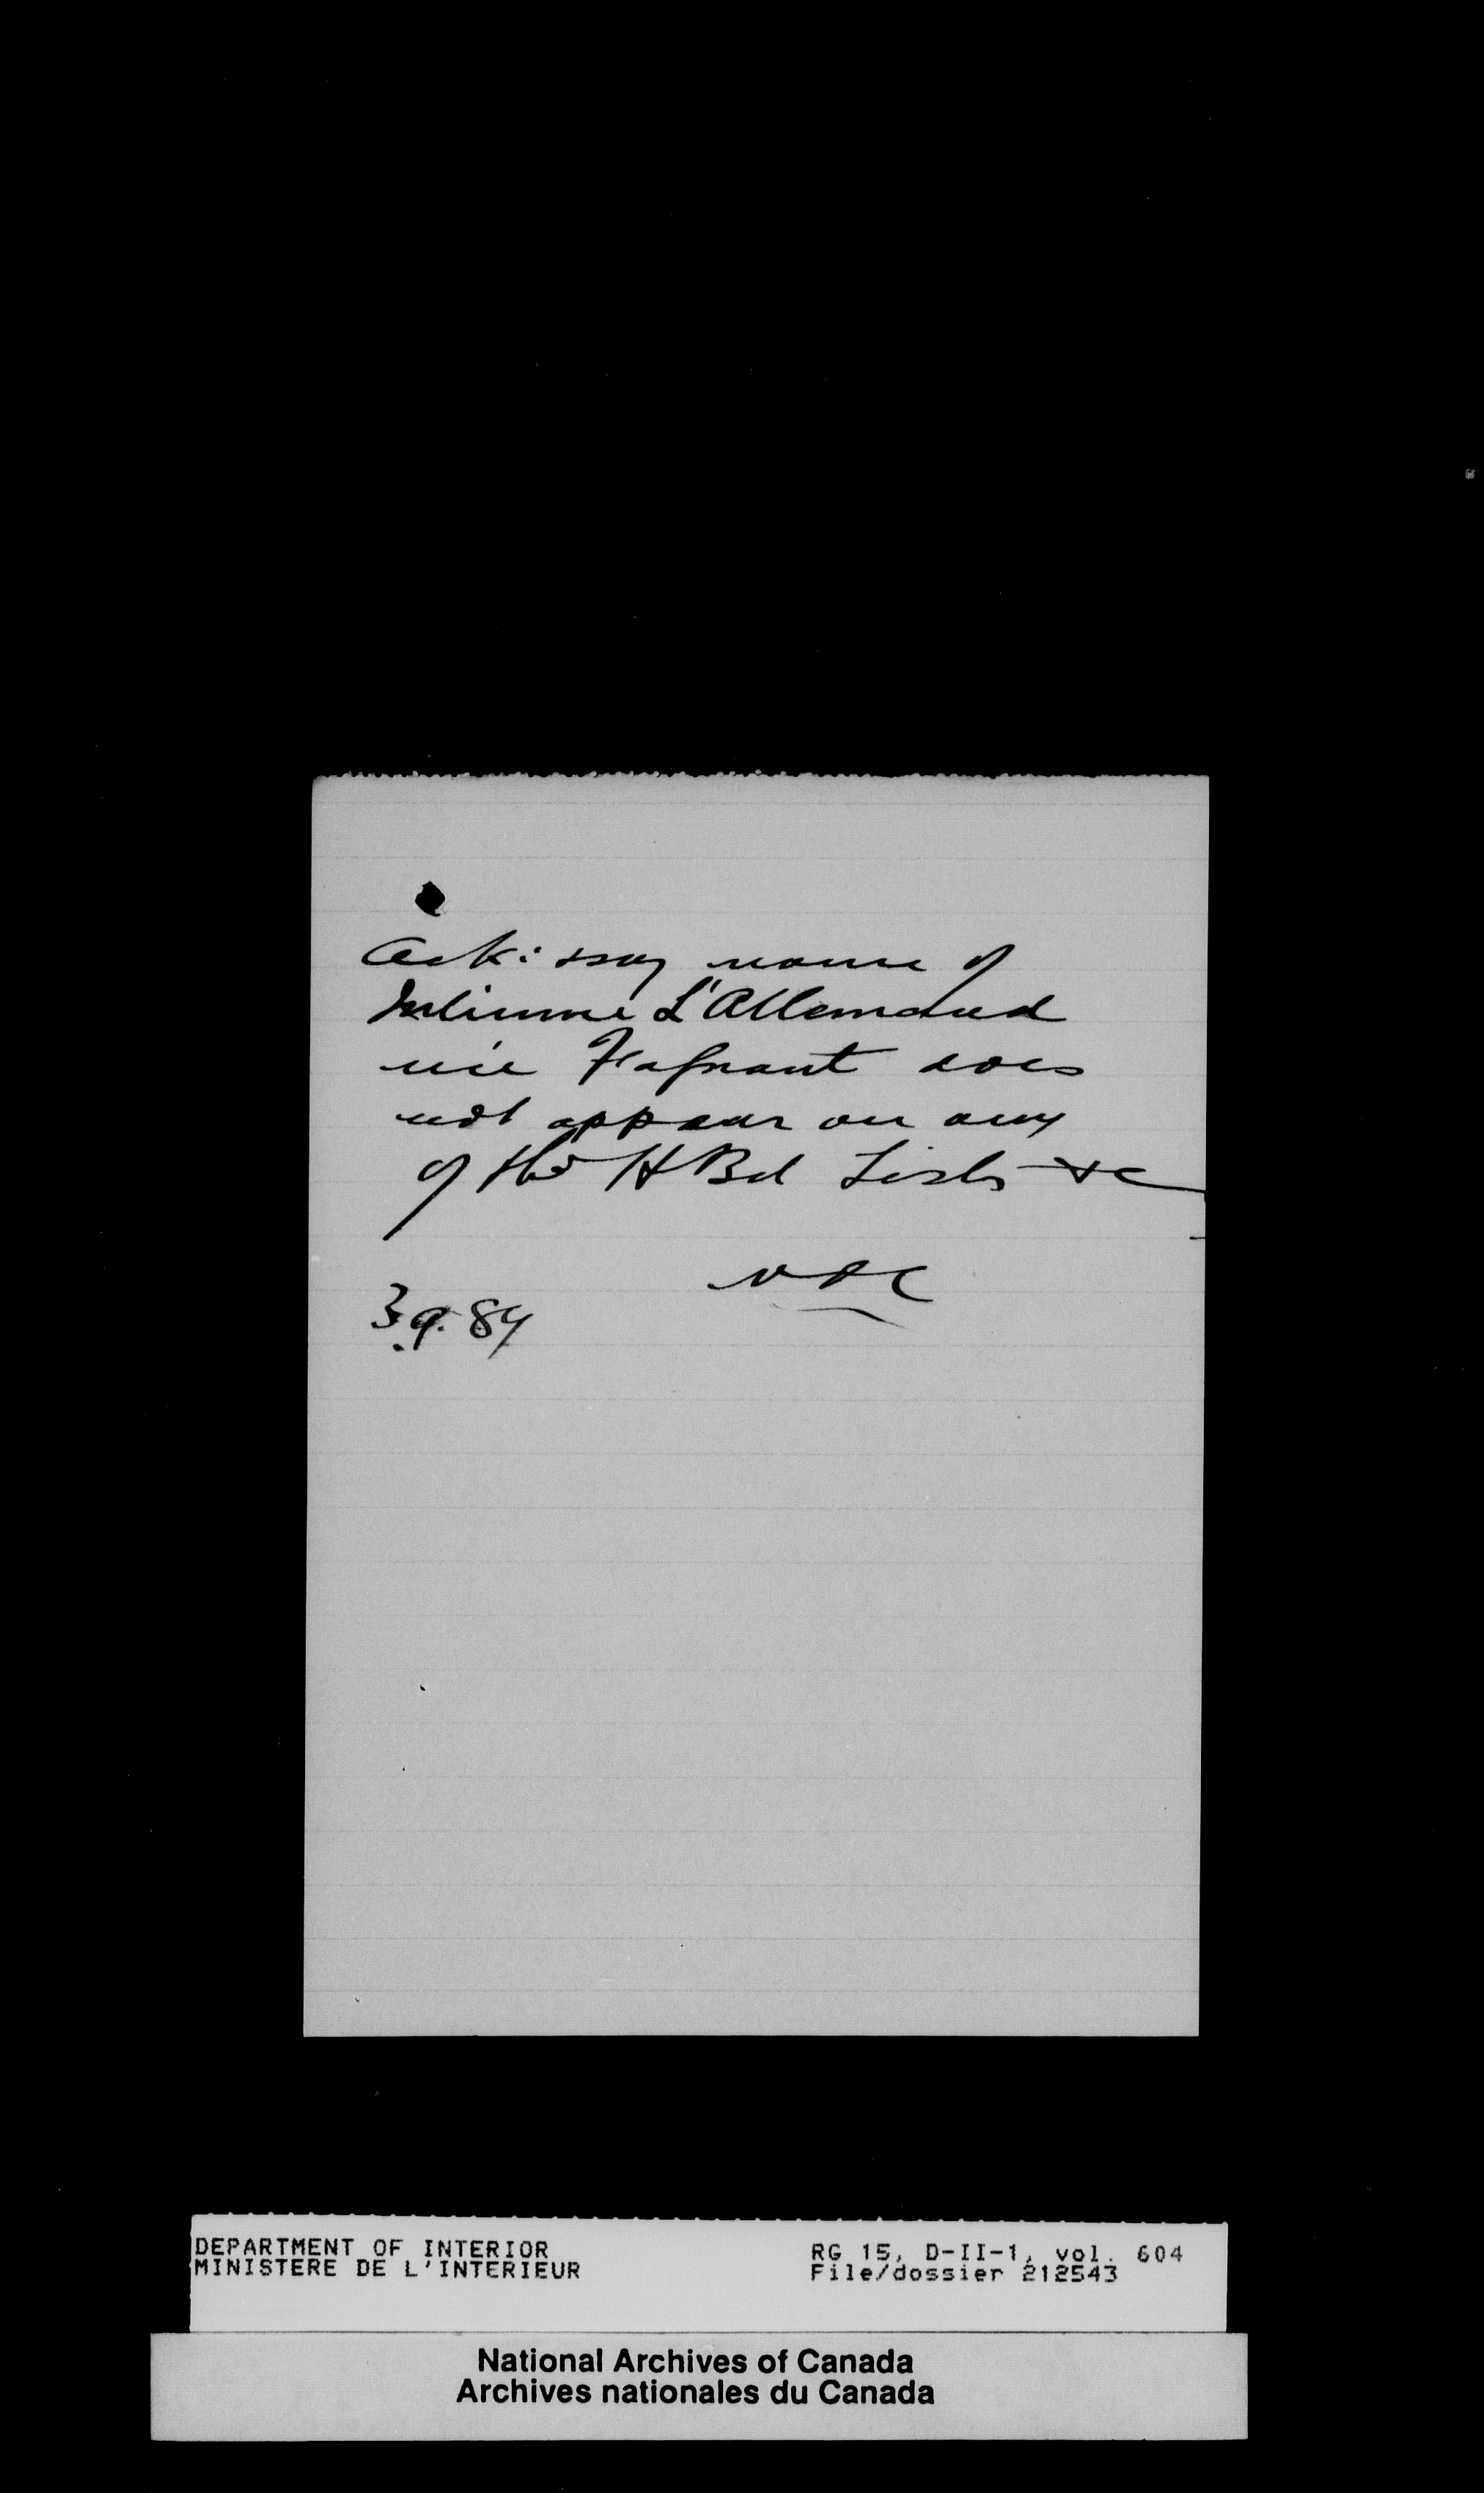 Ack: say name of
Julienne L'Allemand
née Fagnant does
not appear on any
of the HBd Lists &c
3.9.84
DEPARTMENT OF INTERIOR
MINISTERE DE L'INTERIEUR
RG 15, D-II-1, vol. 604
File/dossier 212543
National Archives of Canada
Archives nationales du Canada